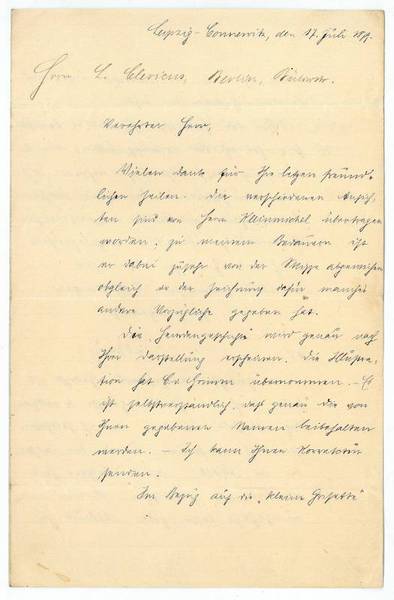 Leipzig-Connewitz, den 17. Juli 189.
Herrn L. Clericus, Berlin,
Verehrter Herr,
Vielen Dank für Ihre letzten freund-
lichen Zeilen. Die verschiedenen Ansich-
ten sind von Herrn Kleinmichel übertragen
worden; zu meinem Bedauern ist
er dabei zu sehr von der Skizze abgewichen
obgleich er der Zeichnung dafür manches
andere Vorzügliche gegeben hat.
Die Hundegeschichte wird genau nach
Ihrer Darstellung erscheinen. Die Illustra-
tion hat übernommen. – Es
ist selbstverständlich, daß genau die von
Ihnen gegebenen Namen beibehalten
werden. – Ich kann Ihnen Korrektur
senden.
In Bezug auf die „kleine Grisette“